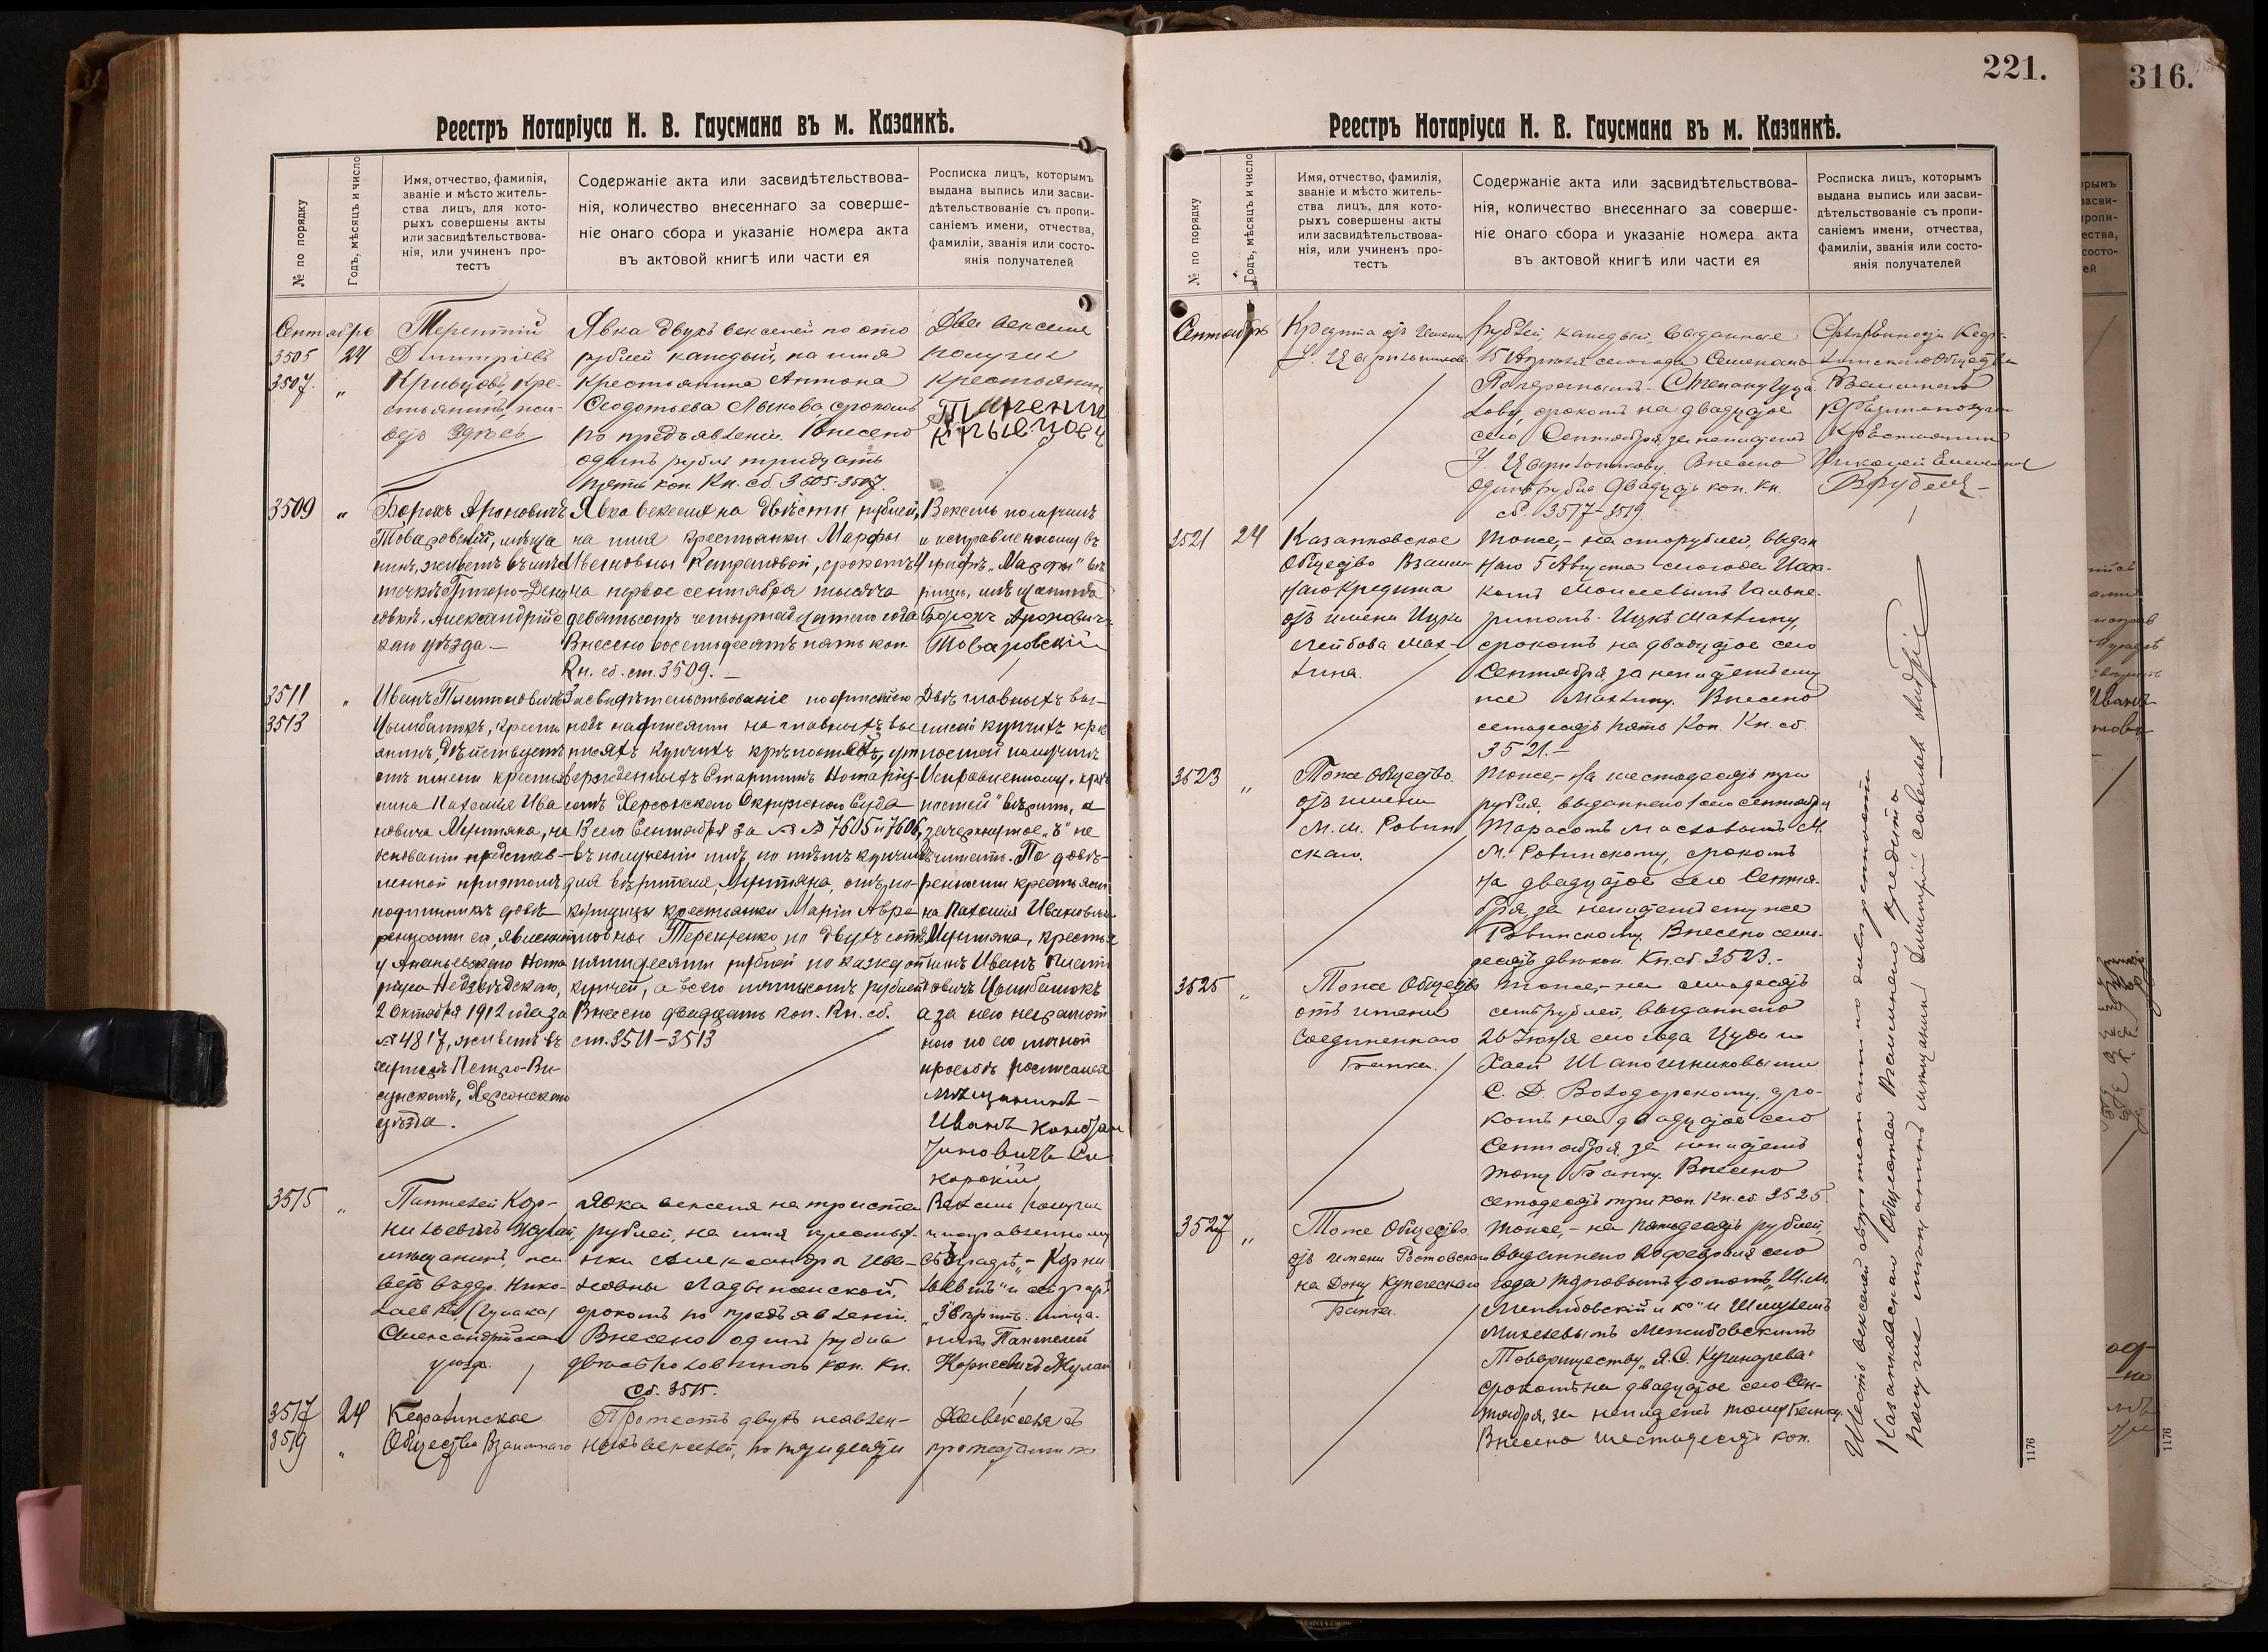 221.
316.
Реестръ Нотаріуса Н. В. Гаусмана въ м. Казанкѣ.
№ по порядку
Годъ, мѣсяцъ и число
Имя, отчество, фамилія,
званіе и мѣсто житель-
ства лицъ, для кото-
рыхъ совершены акты
или засвидѣтельствова-
нія, или учиненъ про-
тестъ
Содержаніе акта или засвидѣтельствова-
нія, количество внесеннаго за соверше-
ніе онаго сбора и указаніе номера акта
въ актовой книгѣ или части ея
Росписка лицъ, которымъ
выдана выпись или засви-
дѣтельствованіе съ пропи-
саніемъ имени, отчества,
фамиліи, званія или состо-
янія получателей
Сентября
3505 24
3507. "
Терентій
Дмитріевъ
Кривцовъ, кре-
стьянинъ, жи-
ветъ здѣсь
Явка двухъ векселей по сто
рублей каждый, на имя
крестьянина Антона
Ѳеодотьева Лыкова, срокомъ
по предъявленіи. Внесено
одинъ рубль тридцать
пять коп. Кн. сб. 3505-3507.
Два векселя
получилъ
крестьянин
3509 "
Борохъ Ароновичъ
Товаровскій, мѣща
нинъ, живетъ въ мѣс
течкѣ Григоро-Дени
совкѣ, Александрійс
каго уѣзда.—
Явка векселя на двѣсти рублей,
на имя крестьянки Марфы
Ивановны Капрановой, срокомъ
на первое сентября тысяча
девятьсотъ четырнадцатаго года
Внесено восемьдесятъ пять коп.
Кн. сб. ст. 3509.—
Вексель получилъ
и исправленному въ
графѣ „Марфы" вѣ
рить, мѣщанинъ
Борохъ Ароновичъ
Товаровскій
3511 "
3513
Иванъ Платоновичъ
Цымбалюкъ, крестья
анинъ, дѣйствуетъ
отъ имени крестья
нина Пахомія Ива
новича Мунтяна, на
основаніи представ-
ленной при этомъ
подлинникѣ довѣ-
ренности его, явленной
у Ананьевскаго Нота
ріуса Недзвѣдскаго,
2 Октября 1912 года за
№ 4817, живетъ въ
хуторѣ Петро-Ви-
сунскомъ, Херсонскаго
уѣзда.
Засвидѣтельствованіе подписей
подъ надписями на главныхъ вы
писяхъ купчихъ крѣпостей, ут
вержденныхъ Старшимъ Нотаріу-
сомъ Херсонскаго Окружнаго Суда
13 сего Сентября за №№ 7605 и 7606,
въ полученіи имъ, по тѣмъ купчимъ
для вѣрителя, Мунтяна, отъ по-
купщицы крестьянки Маріи Авра-
мовны Терещенко по двухъ сотъ
пятидесяти рублей по каждой
купчей, а всего пятьсотъ рублей
Внесено двадцать коп. Кн. сб.
ст. 3511—3513
Двѣ главныхъ вы-
писей купчихъ крѣ
постей получилъ
Исправленному „крѣ
постей" вѣрить, а
зачеркнутое „ъ" не
читать. По довѣ-
ренности крестьяни
на Пахомія Ивановича
Мунтяна, крестья
нинъ Иванъ Плато
новичъ Цымбалюкъ
а за него неграмот
наго по его личной
просьбѣ росписался
мѣщанинъ—
Иванъ Констан
тиновичъ Си
корскій
3515 "
Пантелей Кор-
нильевичъ Жулай,
мѣщанинъ, жи
ветъ въ дер. Нико-
лаевкѣ (Гулака)
Александрійскаго
уѣзда.
Явка векселя на триста
рублей, на имя крестья-
нки Александры Ива-
новны Ладыженской,
срокомъ по предъявленіи.
Внесено одинъ рубль
девяносто коп. Кн.
сб. 3515.
Вексель получилъ
и исправленному
вѣрить мѣща-
нинъ Пантелей
Корнеевичъ Жулай
3517 24
3519 "
Общество Взаимнаго
Протестъ двухъ неявлен-
ныхъ векселей, по тридцати
Два векселя съ
протестами по
Реестръ Нотаріуса Н. В. Гаусмана въ м. Казанкѣ.
№ по порядку
Годъ, мѣсяцъ и число
Имя, отчество, фамилія,
званіе и мѣсто житель-
ства лицъ, для кото-
рыхъ совершены акты
или засвидѣтельствова-
нія, или учиненъ про-
тестъ
Содержаніе акта или засвидѣтельствова-
нія, количество внесеннаго за соверше-
ніе онаго сбора и указаніе номера акта
въ актовой книгѣ или части ея
Росписка лицъ, которымъ
выдана выпись или засви-
дѣтельствованіе съ пропи-
саніемъ имени, отчества,
фамиліи, званія или состо-
янія получателей
Сентябрь
Кредита отъ имени
рублей, каждый, выданные
15 Апрѣля сего года Семеномъ
срокомъ на двадцатое
сего Сентября, за неплатежъ
Внесено
одинъ рубль двадцать коп. Кн.
сб. 3517-3519.
Взаимнаго
Николай
3521 24
Казанковское
Общество Взаим-
наго Кредита
отъ имени Ицки
Лейбова Мах-
лина.
Тоже,- на сто рублей, выдан
наго 5 Августа сего года Исаа-
комъ Моисеевымъ Гальпе-
риномъ Ицкѣ Махлину,
срокомъ на двадцатое сего
Сентября, за неплатежъ ему
же Махлину. Внесено
семьдесятъ пять Коп. Кн. сб.
3521.—
3523 "
Тоже Общество.
отъ имени
М. М. Ровин
скаго.
Тоже,- на шестьдесятъ три
рубля, выданнаго 1 сего сентября
Тарасомъ Масловымъ М.
М. Ровинскому, срокомъ
на двадцатое сего Сентя-
бря, за неплатежъ ему же
Ровинскому. Внесено семь-
десятъ двѣ коп. Кн. сб. 3523.-
3525 "
Тоже Общество
отъ имени
Соединеннаго
Банка.
Тоже,- на семьдесятъ
семь рублей, выданнаго
26 Іюня сего года Цудик и
Хаей Шапошниковыми
С. Д. Вологорскому, сро-
комъ на двадцатое сего
Сентября, за неплатежъ
тому Банку. Внесено
семьдесятъ три коп. Кн. сб. 3525.
3527 "
Тоже Общество.
отъ имени Ростовскаго
на Дону Купеческаго
Банка.
Тоже,- на пятьдесятъ рублей,
выданнаго 20 февраля сего
года торговымъ домомъ „Ш. М.
Межибовскій и Кº" и Шмулемъ
Михелевымъ Межибовскимъ
Товариществу „Я. С. Кушнарева"
срокомъ на двадцатое сего Сен-
тября, за неплатежъ тому Банку.
Внесено шестьдесятъ коп.
Шесть векселей съ протестами по довѣренности
Казанковскаго Общества Взаимнаго Кредита
получилъ мѣщанинъ Дмитрій
1176
1176